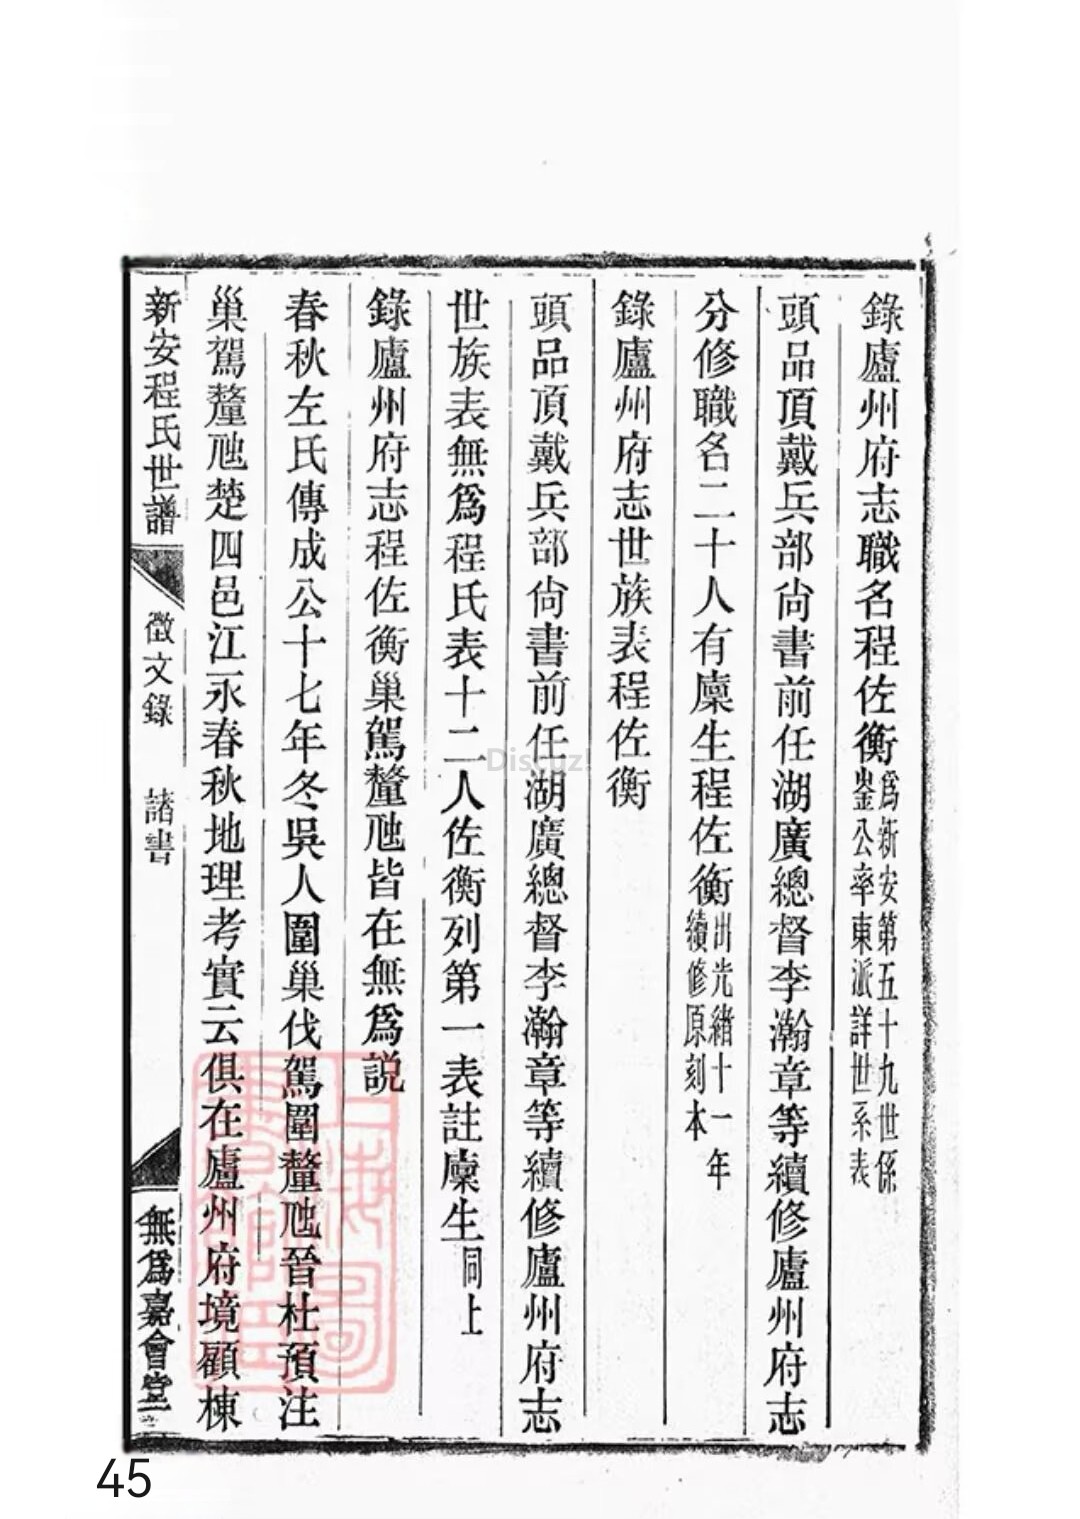 錄廬州府志職名程佐衡為新安第五十九世係
鋆公率東派詳世系表
頭品頂戴兵部尙書前任湖廣總督李瀚章等續修廬州府志
分修職名二十人有廩生程佐衡出光緒十一年
續修原刻本
錄廬州府志世族表程佐衡
頭品頂戴兵部尙書前任湖廣總督李瀚章等續修廬州府志
世族表無爲程氏表十二人佐衡列第一表註廩生同上
錄廬州府志程佐衡巢駕釐虺皆在無爲説
春秋左氏傳成公十七年冬吳人圍巢伐駕圍釐虺晉杜預注
巢駕釐虺楚四邑江永春秋地理考實云俱在廬州府境顧棟
新安程氏世譜
徵文錄 諸書
無爲嘉會堂
Discuz!
45